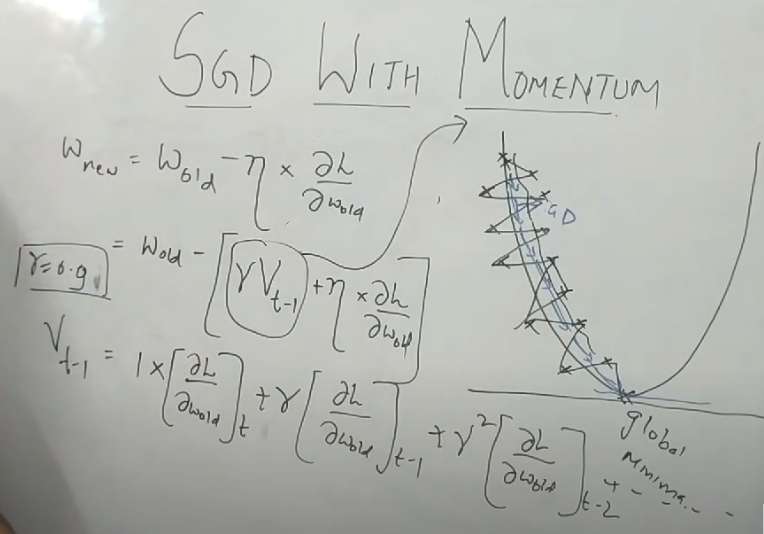 SGD WITH MOMENTUM
W_new = W_old - η × ∂L/∂w_old
= W_old - [γV_t-1 + η × ∂L/∂w_old]
γ=0.9
V_t-1 = 1 × [∂L/∂w_old]_t + γ[∂L/∂w_old]_t-1 + γ²[∂L/∂w_old]_t-2 + - - - -
GD
global
minima